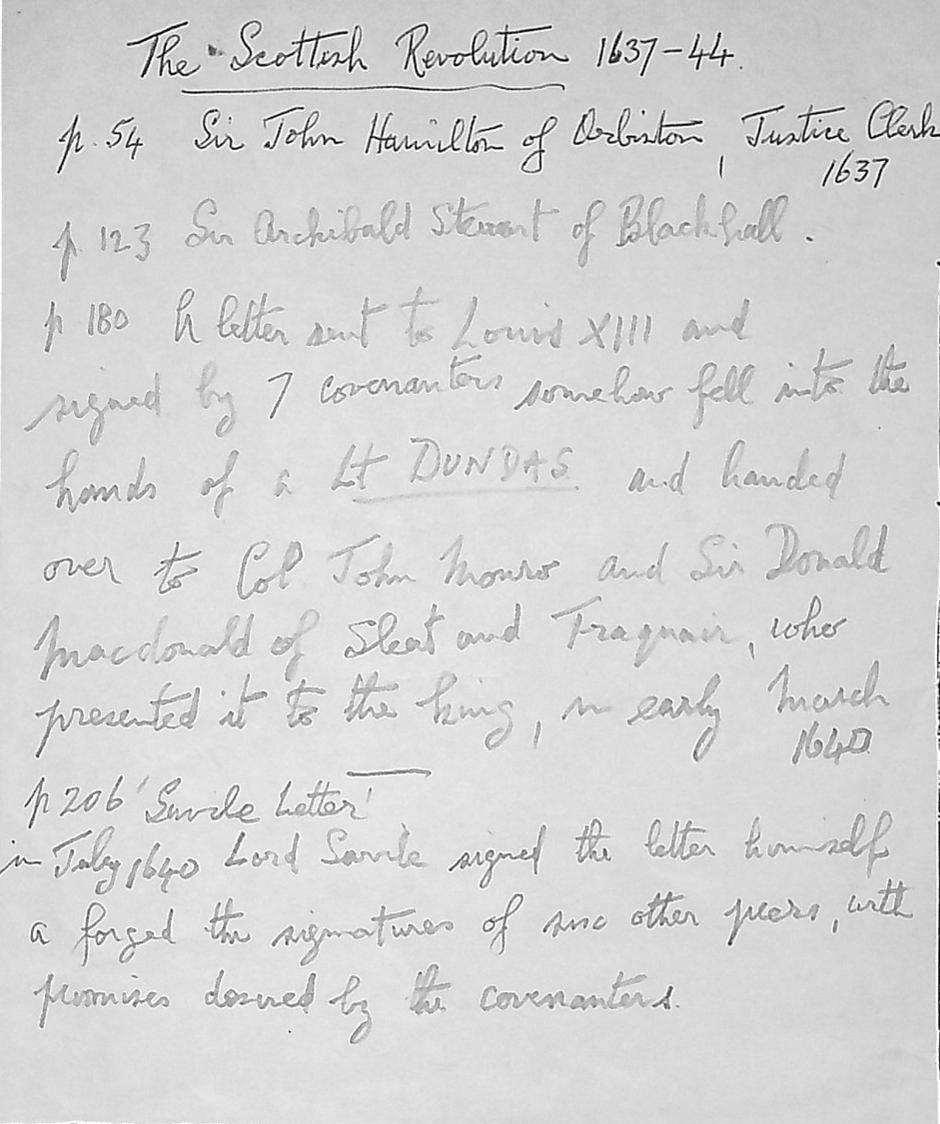 The Scottish Revolution 1637-44.
p. 54 Sir John Hamilton of Orbiston, Justice Clerk
1637
p. 123 Sir Archibald Stewart of Blackhall.
p 180 A letter sent to Louis XIII and
signed by 7 covenanters somehow fell into the
hands of a Lt DUNDAS and handed
over to Col John Monro and Sir Donald
Macdonald of Sleat and Traquair, who
presented it to the king, in early March
1640
p 206 'Savile Letter'
in July 1640 Lord Savile signed the letter himself
a forged the signatures of six other peers, with
promises desired by the covenanters.